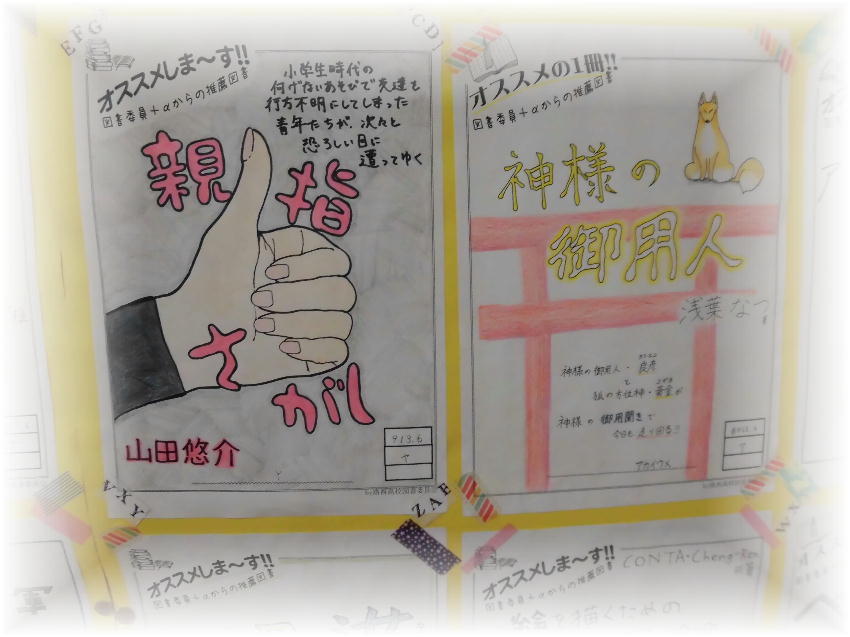 EFG
CD
オススメしま〜す!!
図書委員+αからの推薦図書
小学生時代の
何げないあそびで友達を
行方不明にしてしまった
青年たちが、次々と
恐ろしい目に
遭ってゆく
親指
さ
がし
山田悠介
913.6
ヤ
XY
ZAE
オススメの1冊!!
図書委員+αからの推薦図書
神様の
御用人
浅葉なつ
神様の御用人・良彦
と
狐の方位神・黄金が
神様の御用聞きで
今日も走り回る!!
ア
オススメしま〜す!!
図書委員+αからの推薦図書
オススメしま〜す!!
図書委員+αからの推薦図書
CONTA・Cheng-Ren
絵を描くための